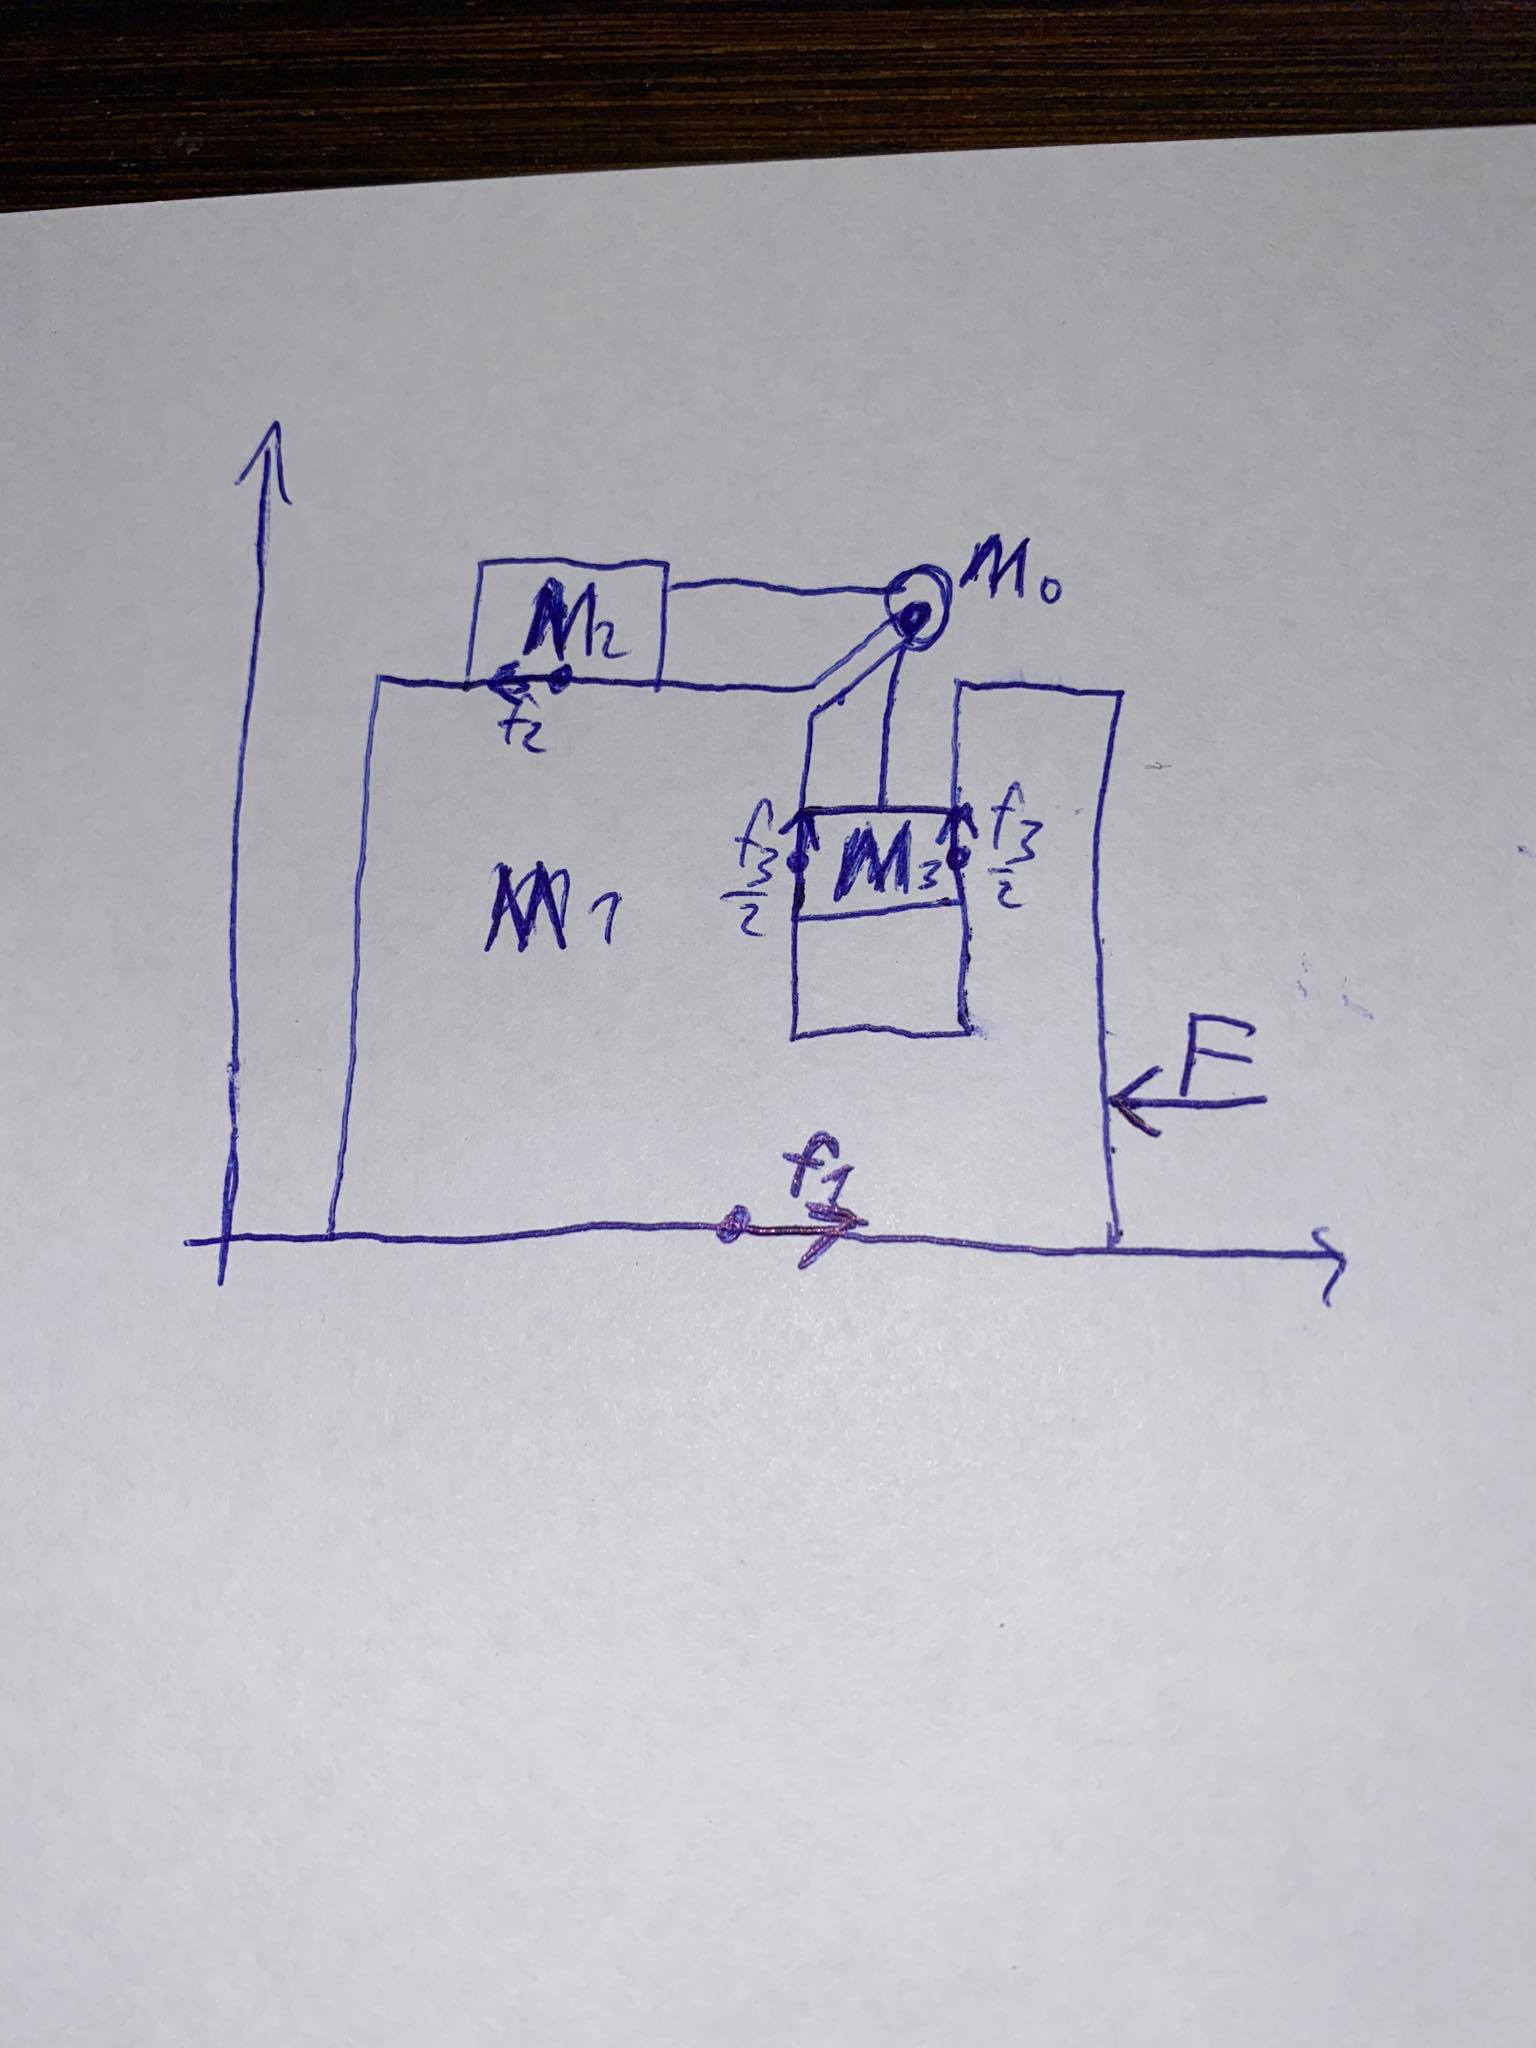 M₀
M₂
f₂
f₃/2
M₃
f₃/2
M₁
F
f₁